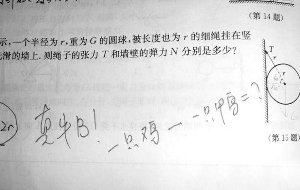 (第14题)
示,一个半径为r,重为G的圆球,被长度也为r的细绳挂在竖
光滑的墙上.则绳子的张力T和墙壁的弹力N分别是多少?
T
r
真牛B!
一只鸡一一只鸭=?
(第15题)